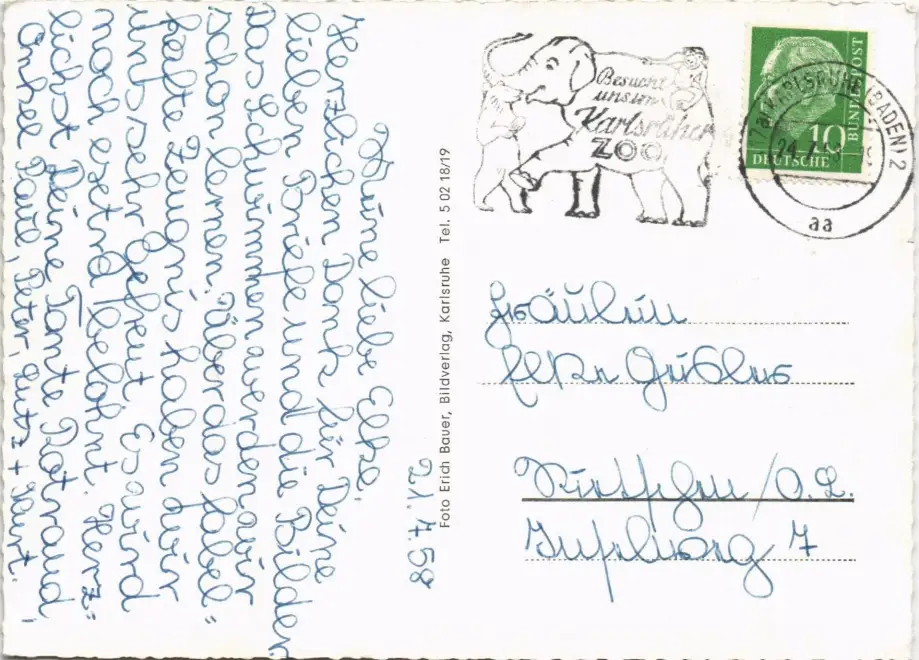 Besucht
unsern
Karlsruher
ZOO
KARLSRUHE (BADEN) 2
aa
10
DEUTSCHE
BUNDESPOST
21.7.58
Meine liebe Elke,
Herzlichen Dank für Deine
lieben Briefe und die Bilder.
Das Schwimmen werden wir
schon lernen. Über das fabel=
hafte Zeugnis haben wir
uns sehr gefreut. Es wird
noch extra belohnt. Herz=
lichst Deine Tante Rotraud
Onkel Paul, Peter, Lutz +
Foto Erich Bauer, Bildverlag, Karlsruhe Tel. 5 02 18/19
Fräulein
Elke
/O.L.
7